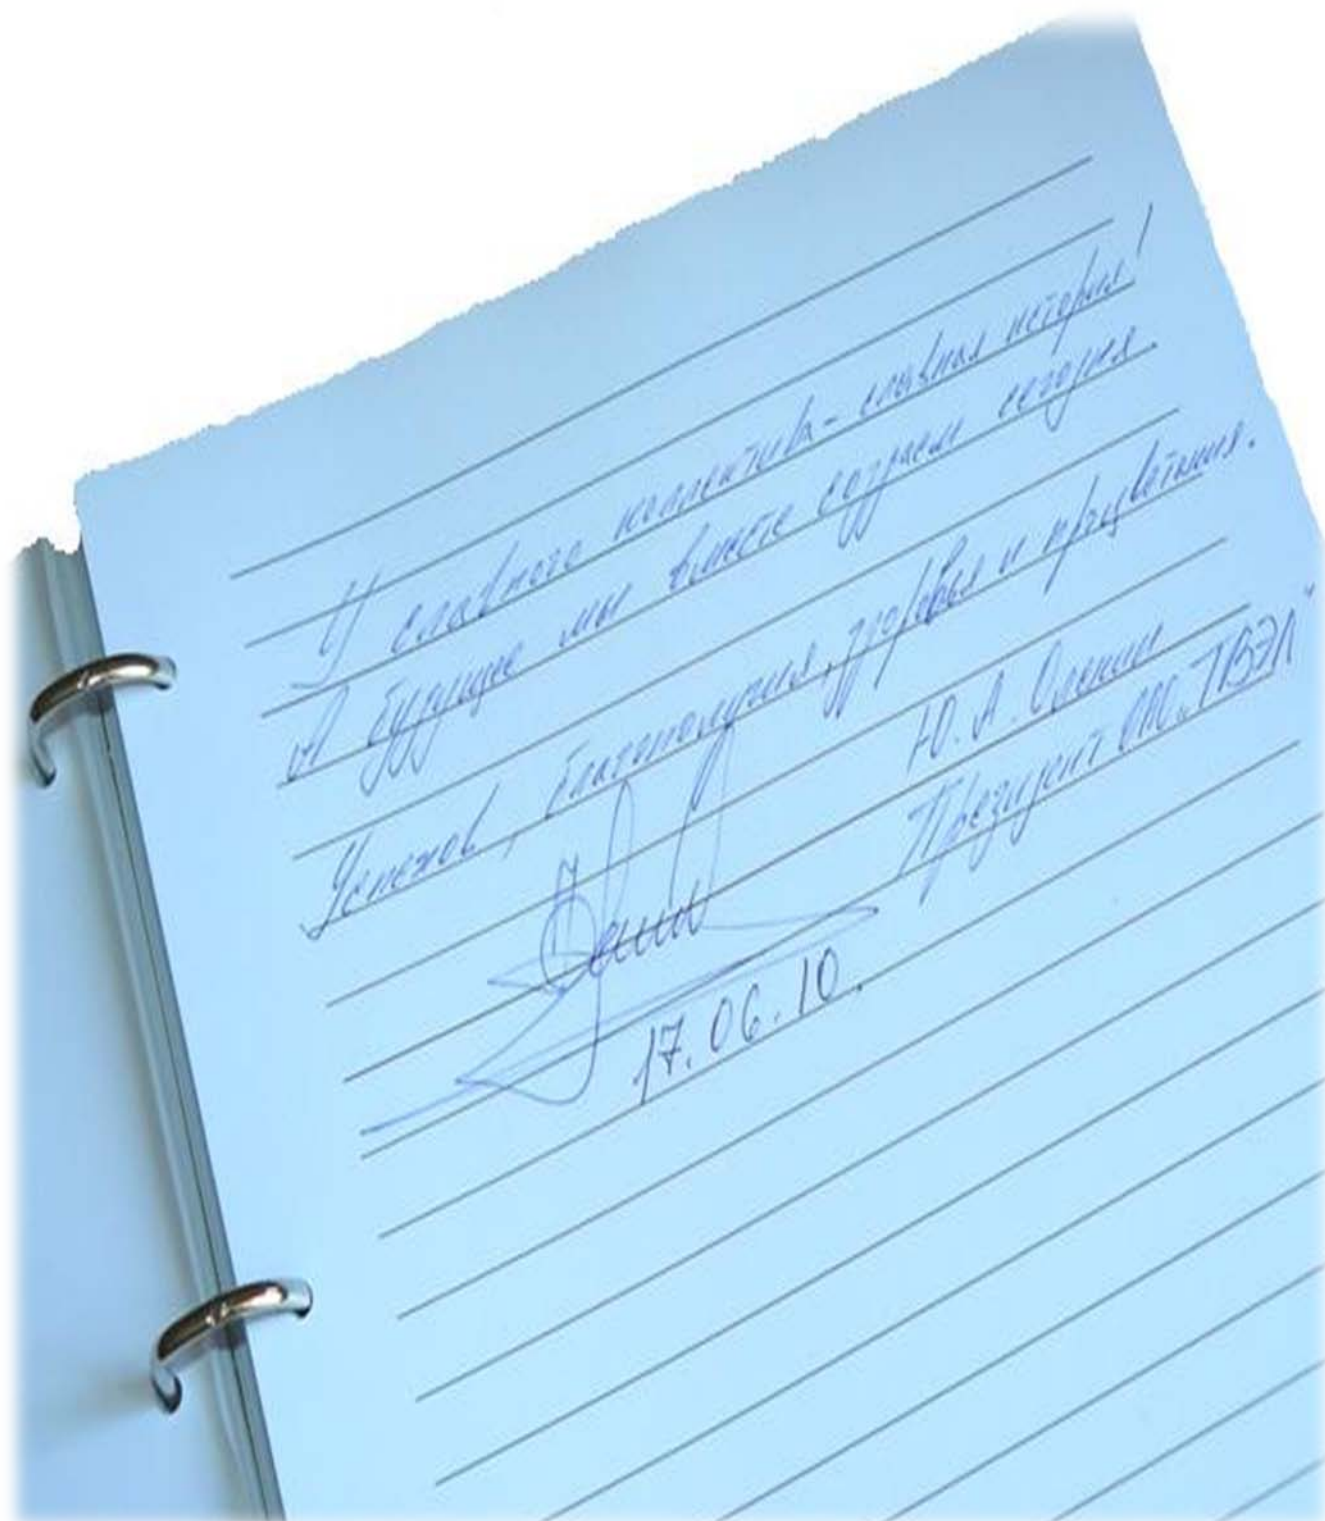 У славного коллектива - славная история!
А будущее мы вместе создаем сегодня.
Успехов, благополучия, здоровья и процветания.
Ю.А. Оленин
Президент ОАО „ТВЭЛ"
17.06.10.